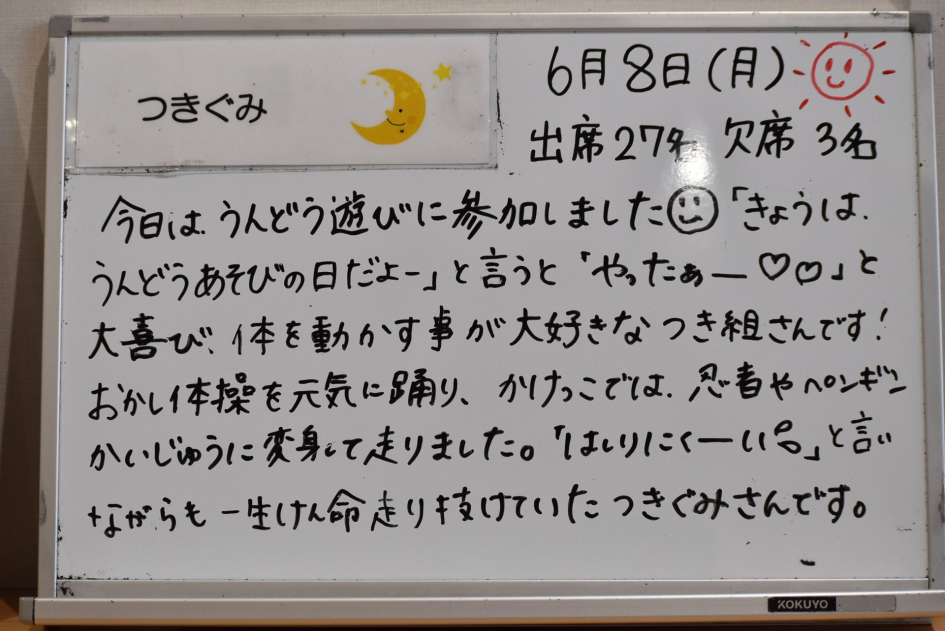 つきぐみ
6月8日(月)
出席27名 欠席 3名
今日は、うんどう遊びに参加しました「きょうは、
うんどうあそびの日だよー」と言うと「やったぁー♡♡」と
大喜び! 体を動かす事が大好きなつき組さんです!
おかし体操を元気に踊り、かけっこでは、忍者やペンギン
かいじゅうに変身して走りました。「はしりにくーい」と言い
ながらも一生けん命走り抜けていたつきぐみさんです。
KOKUYO